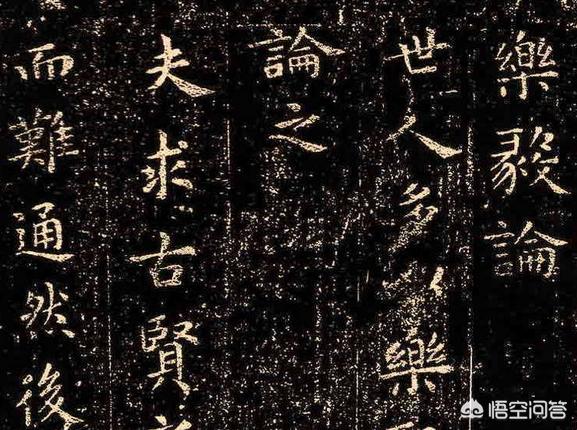 樂毅論
世人多以樂
論之
夫求古賢
而難通然後
悟空问答